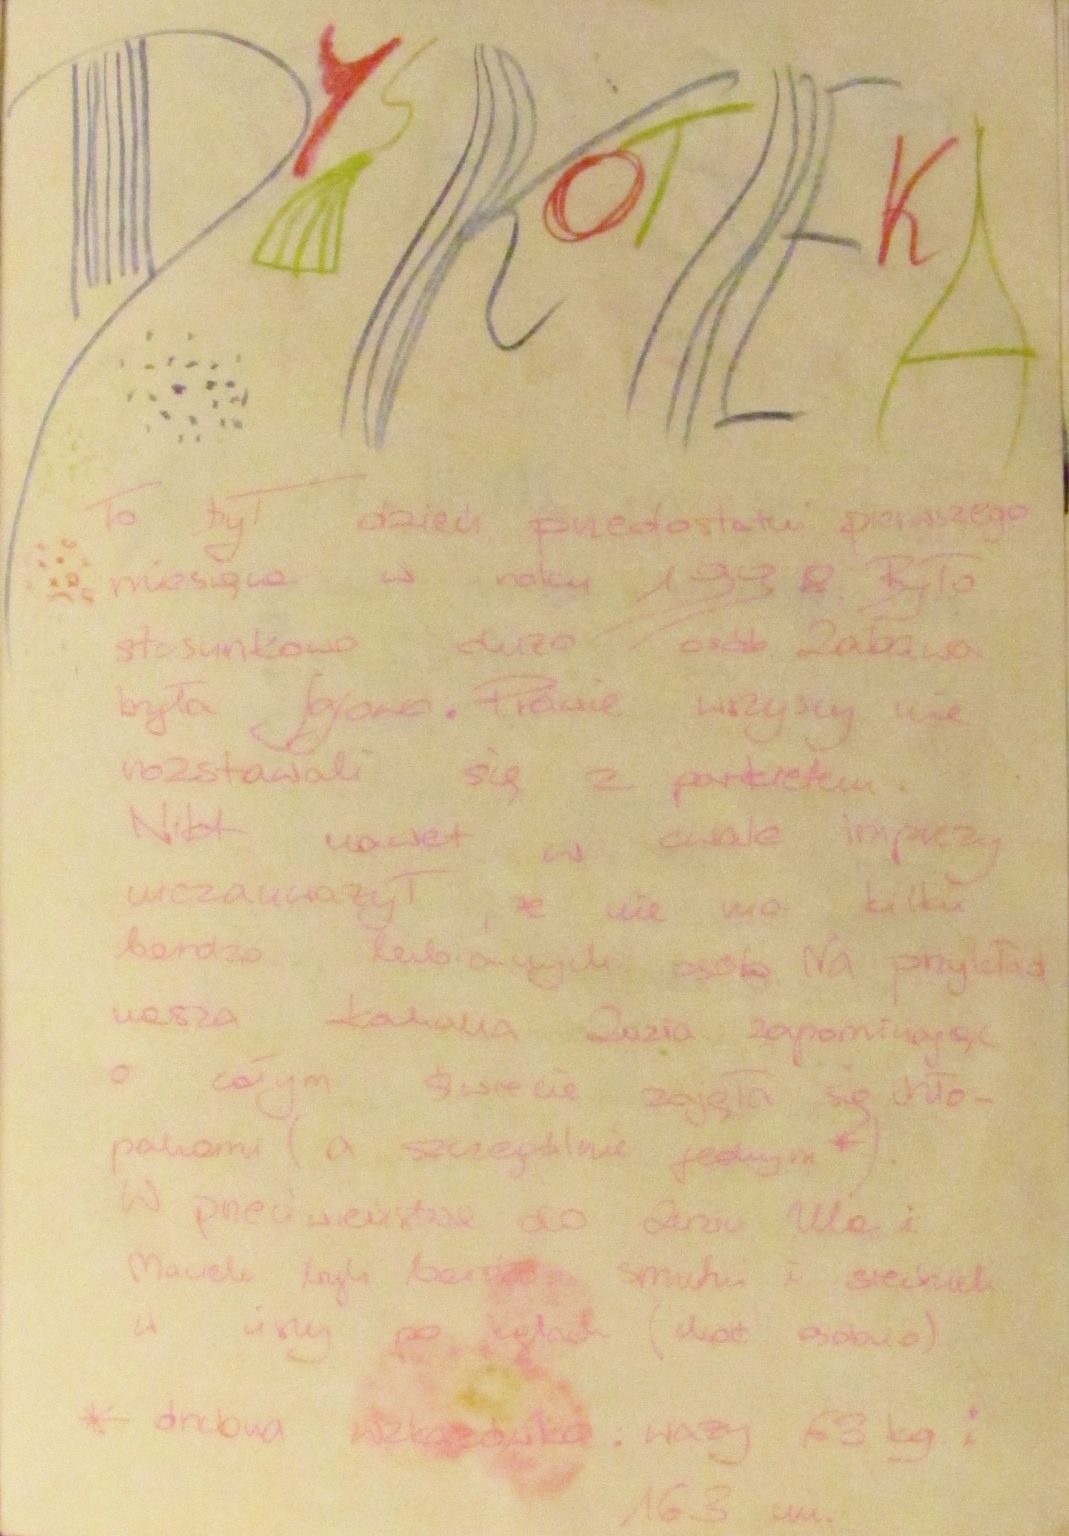 DYSKOTEKA
To był dzień przedostatni pierwszego
miesiąca w roku 1993 R. Było
stosunkowo dużo osób. Zabawa
była fajowa. Prawie wszyscy nie
rozstawali się z parkietem.
Nikt nawet w czasie imprezy
niezauważył, że nie ma kilku
bardzo lubianych osób. Na przykład
nasza kochana Zuzia zapominając
o całym świecie zajęła się chło-
pakami (a szczególnie jednym*).
W przeciwieństwie do Zuziu Ula i
Maciek byli bardzo smutni i siedzieli
w ciszy po kątach (choć osobno)
* drobna wskazówka: waży 63 kg i
163 cm.